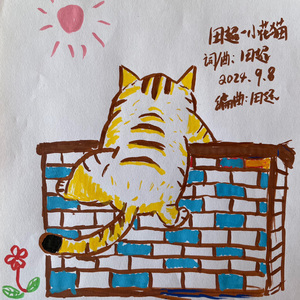 田超-小花猫
词曲:田超
2024.9.8
编曲:田超